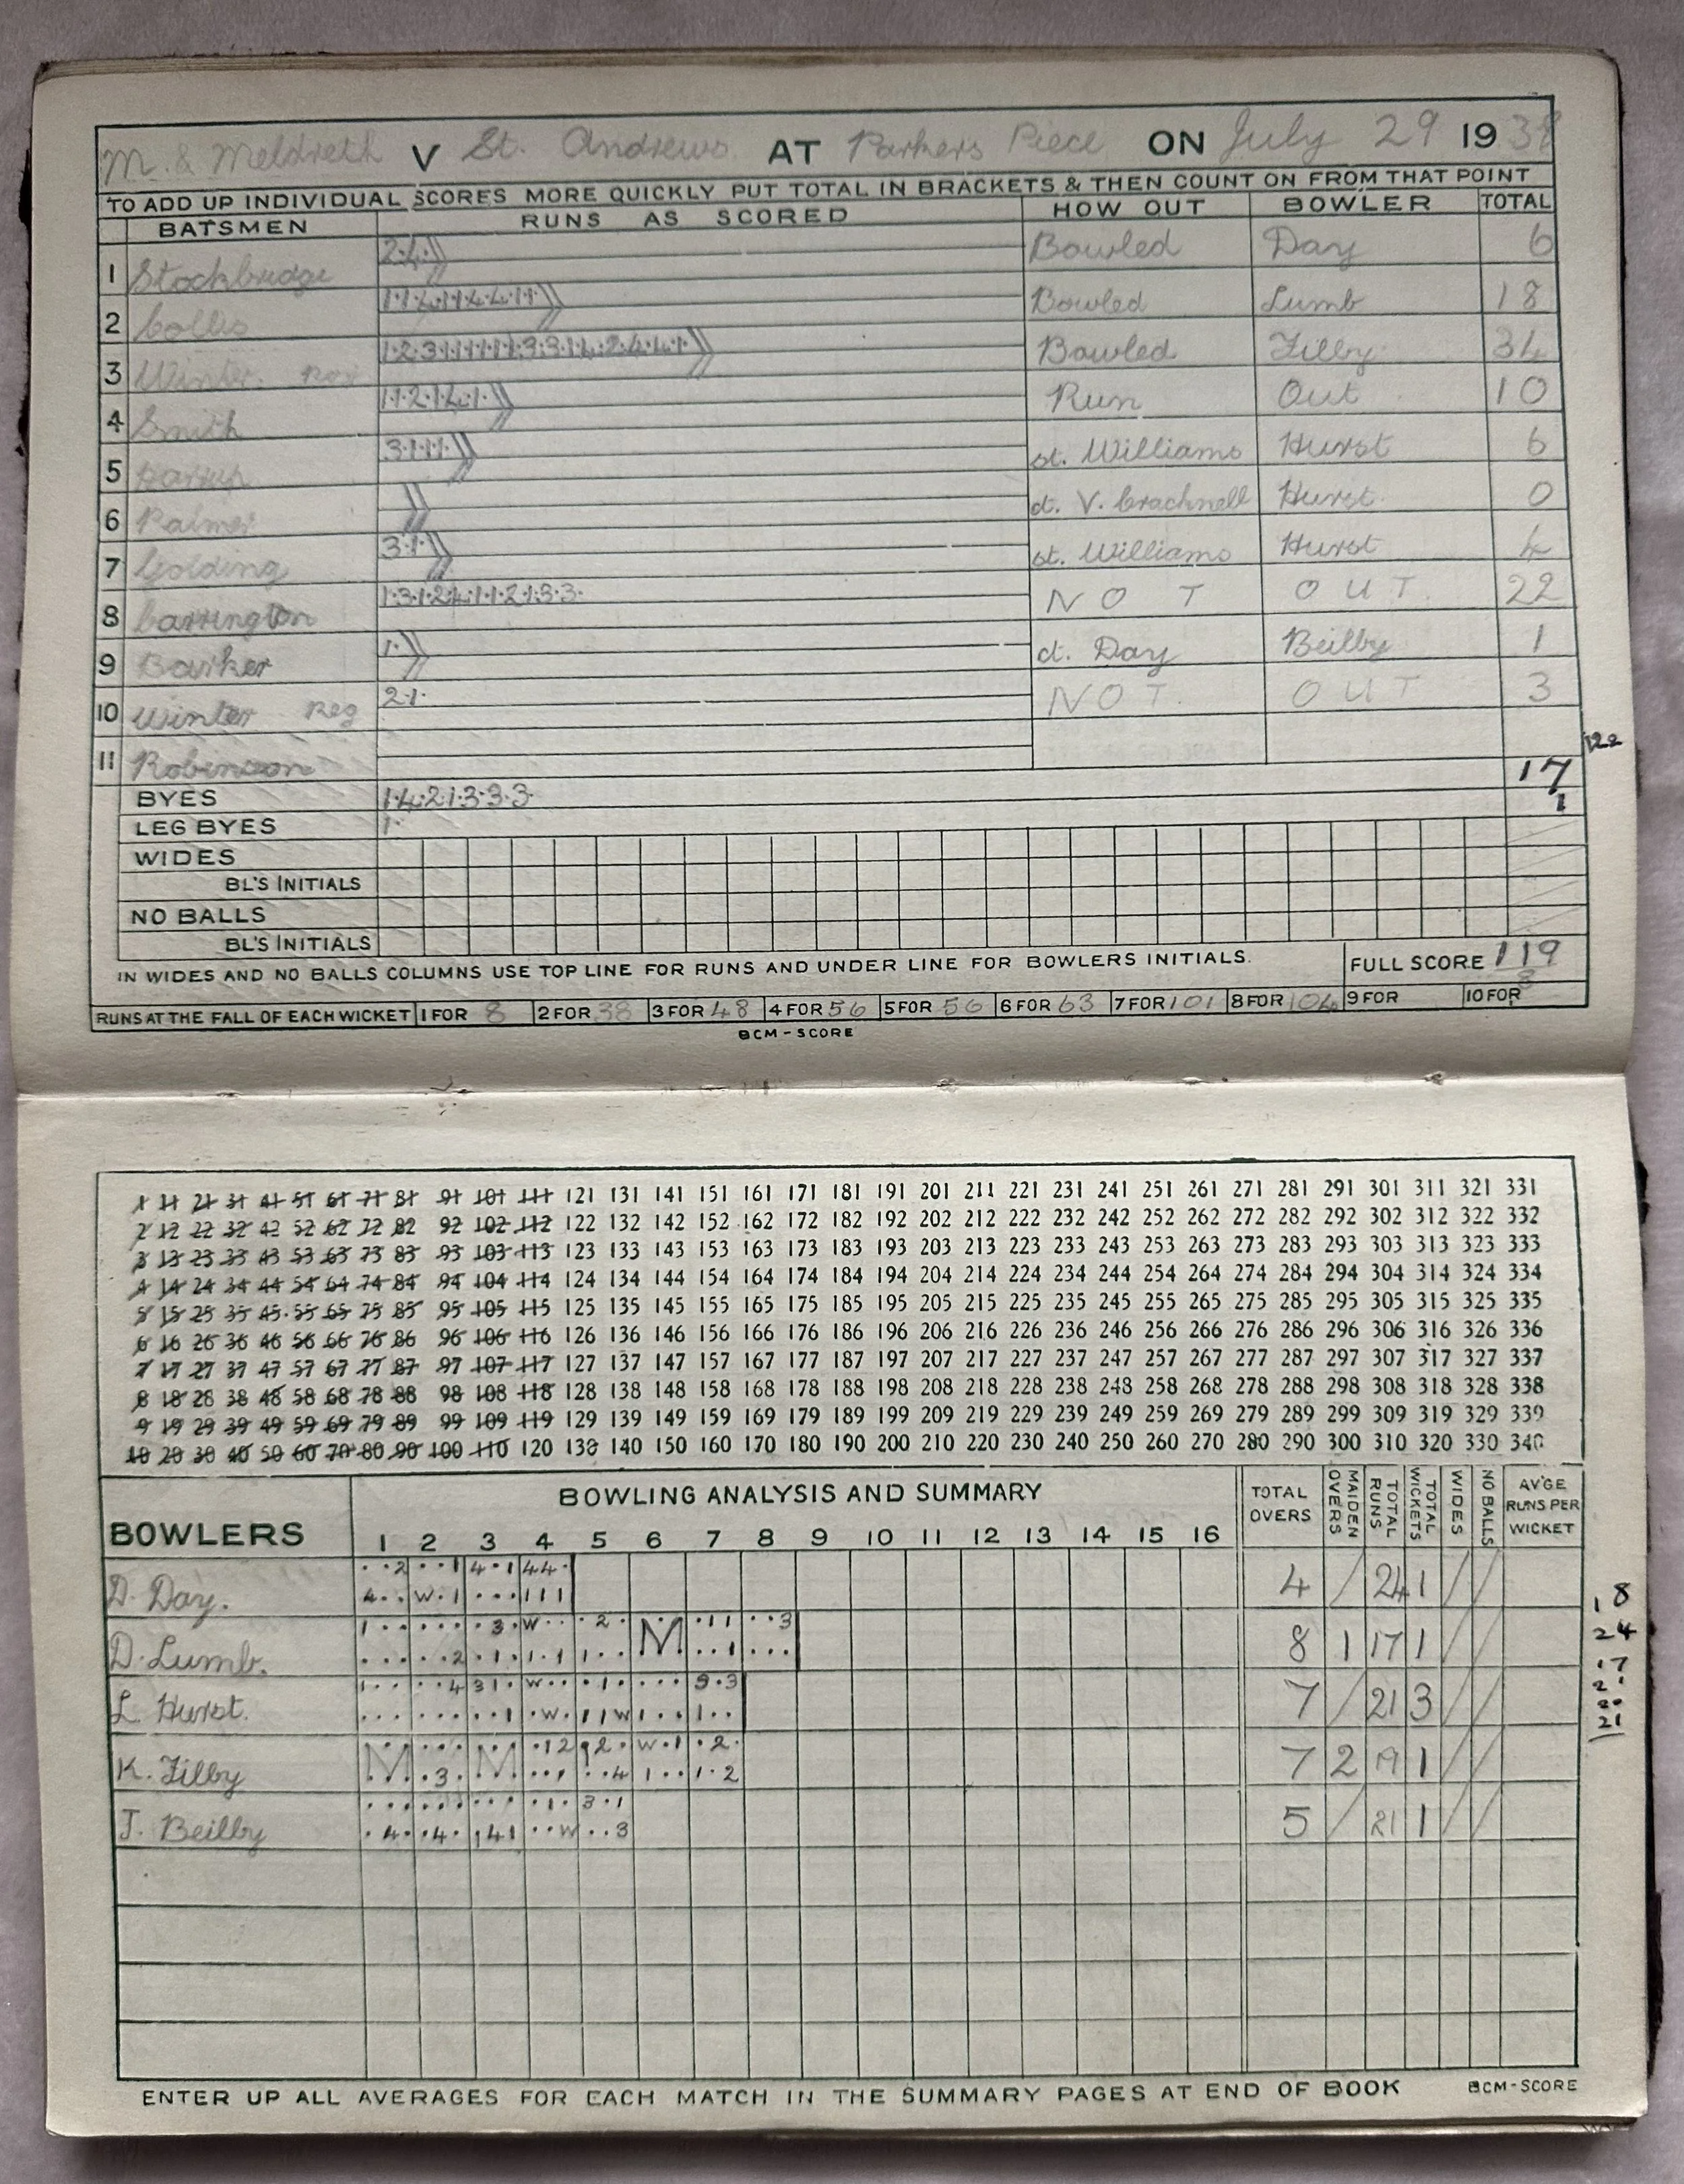 M. & Meldreth V St. Andrews AT Parkers Piece ON July 29 1939
TO ADD UP INDIVIDUAL SCORES MORE QUICKLY PUT TOTAL IN BRACKETS & THEN COUNT ON FROM THAT POINT
BATSMEN RUNS AS SCORED HOW OUT BOWLER TOTAL
1 Stockbridge 2·4· Bowled Day 6
2 Collis 1·1·4·1·1·4·4·1·1· Bowled Lumb 18
3 Winter Bowled Filby 34
4 Smith 1·1·2·1·4·1· Run Out 10
5 3·1·1·1· st. Williams Hurst 6
6 Palmer ct. V. Cracknell Hurst 0
7 Golding 3·1· st. Williams Hurst 4
8 Carrington 1·3·1·2·4·1·1·2·1·3·3· NOT OUT 22
9 Barker 1· ct. Day Beilby 1
10 Winter Reg 2·1· NOT OUT 3
11 Robinson
122
BYES 1·4·2·1·3·3·3· 17
LEG BYES 1· 1
WIDES
BL'S INITIALS
NO BALLS
BL'S INITIALS
IN WIDES AND NO BALLS COLUMNS USE TOP LINE FOR RUNS AND UNDER LINE FOR BOWLERS INITIALS. FULL SCORE 119
RUNS AT THE FALL OF EACH WICKET 1 FOR 8 2 FOR 38 3 FOR 48 4 FOR 56 5 FOR 56 6 FOR 63 7 FOR 101 8 FOR 104 9 FOR 10 FOR
BCM-SCORE
1 11 21 31 41 51 61 71 81 91 101 111 121 131 141 151 161 171 181 191 201 211 221 231 241 251 261 271 281 291 301 311 321 331
2 12 22 32 42 52 62 72 82 92 102 112 122 132 142 152 162 172 182 192 202 212 222 232 242 252 262 272 282 292 302 312 322 332
3 13 23 33 43 53 63 73 83 93 103 113 123 133 143 153 163 173 183 193 203 213 223 233 243 253 263 273 283 293 303 313 323 333
4 14 24 34 44 54 64 74 84 94 104 114 124 134 144 154 164 174 184 194 204 214 224 234 244 254 264 274 284 294 304 314 324 334
5 15 25 35 45 55 65 75 85 95 105 115 125 135 145 155 165 175 185 195 205 215 225 235 245 255 265 275 285 295 305 315 325 335
6 16 26 36 46 56 66 76 86 96 106 116 126 136 146 156 166 176 186 196 206 216 226 236 246 256 266 276 286 296 306 316 326 336
7 17 27 37 47 57 67 77 87 97 107 117 127 137 147 157 167 177 187 197 207 217 227 237 247 257 267 277 287 297 307 317 327 337
8 18 28 38 48 58 68 78 88 98 108 118 128 138 148 158 168 178 188 198 208 218 228 238 248 258 268 278 288 298 308 318 328 338
9 19 29 39 49 59 69 79 89 99 109 119 129 139 149 159 169 179 189 199 209 219 229 239 249 259 269 279 289 299 309 319 329 339
10 20 30 40 50 60 70 80 90 100 110 120 130 140 150 160 170 180 190 200 210 220 230 240 250 260 270 280 290 300 310 320 330 340
BOWLERS BOWLING ANALYSIS AND SUMMARY TOTAL OVERS MAIDEN OVERS TOTAL RUNS TOTAL WICKETS WIDES NO BALLS AV'GE RUNS PER WICKET
1 2 3 4 5 6 7 8 9 10 11 12 13 14 15 16
··2 ··1 4·1 44·
D. Day. 4·· W·1 ··· 111 4 / 24 1 / /
1··· ···· ·3· W·· ·2· M ·11 ··3
D. Lumb. ···· ··2 ·1· 1·1 1·· ··1 ··· 8 1 17 1 / /
1··· ··4 31· W·· ·1· ··· 3·3
L. Hurst. ··· ··· ··1 ·W· 11W 1·· 1·· 7 / 21 3 / /
M ··· M ·12 ·2· W·1 ·2·
K. Filby ·3· ··· ··4 1·· 1·2 7 2 19 1 / /
···· ···· ··· ·1· 3·1
J. Beilby ·4· ·4· 141 ··W ··3 5 / 21 1 / /
18
24
17
21
ENTER UP ALL AVERAGES FOR EACH MATCH IN THE SUMMARY PAGES AT END OF BOOK BCM-SCORE